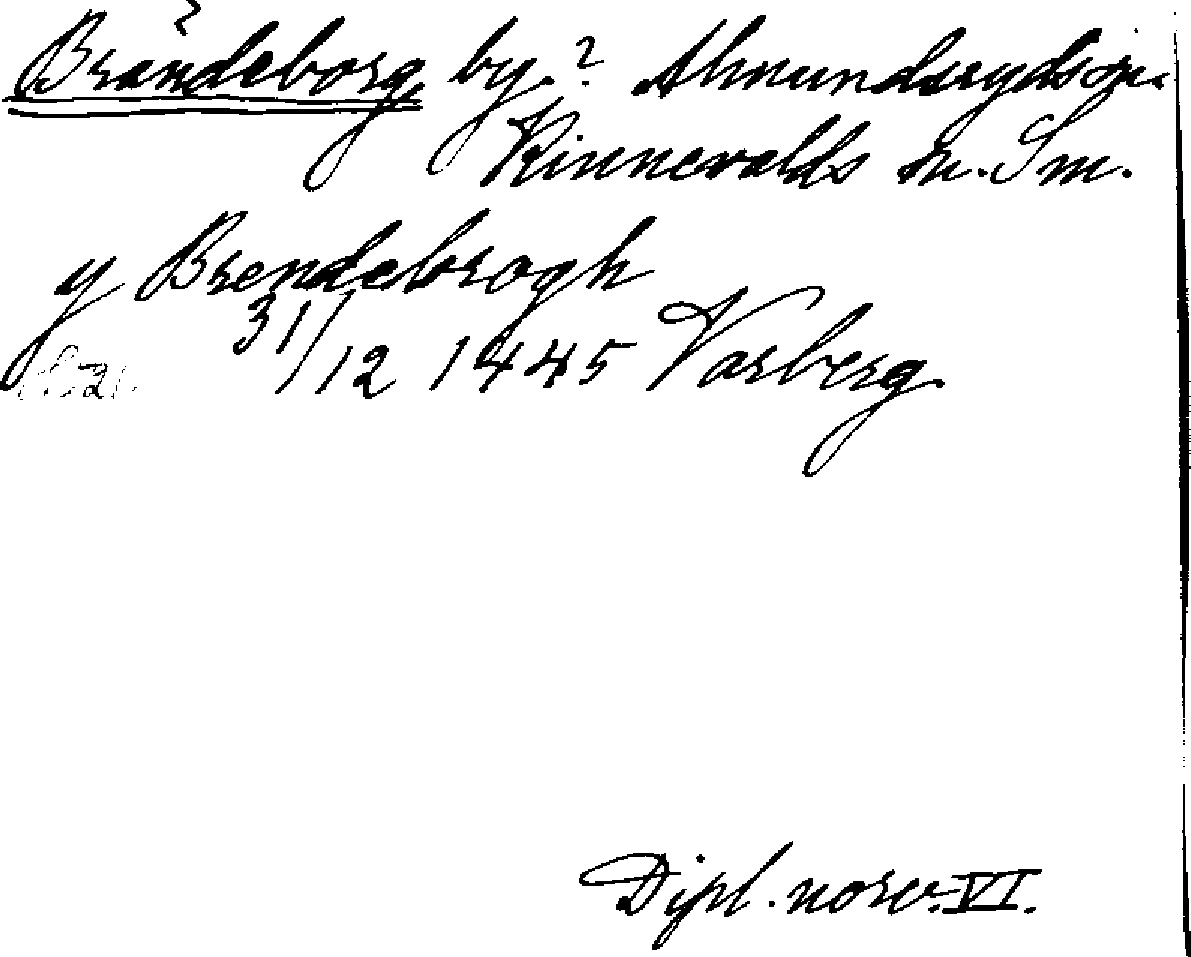 Brändeborg, by.? Almundsryds sn.
Kinnevalds hd. Sm.
y Brendeborogh
31/12 1445 Varberg.
Dipl. norv. VI.